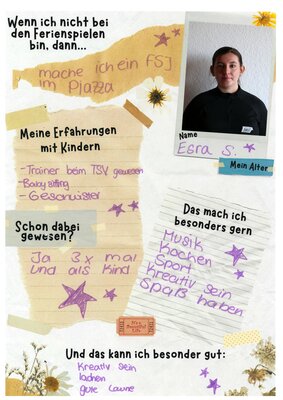 Wenn ich nicht bei
den Ferienspielen
bin, dann...
mache ich ein FSJ
im Pjazza
Name
Esra S.
Mein Alter
Meine Erfahrungen
mit Kindern
- Trainer beim TSV gewesen
- Babysitting
- Geschwister
Schon dabei
gewesen?
Ja 3x mal
und als Kind
Das mach ich
besonders gern
Musik
Kochen
Sport
kreativ sein
Spaß haben
Und das kann ich besonder gut:
kreativ sein
lachen
gute Laune